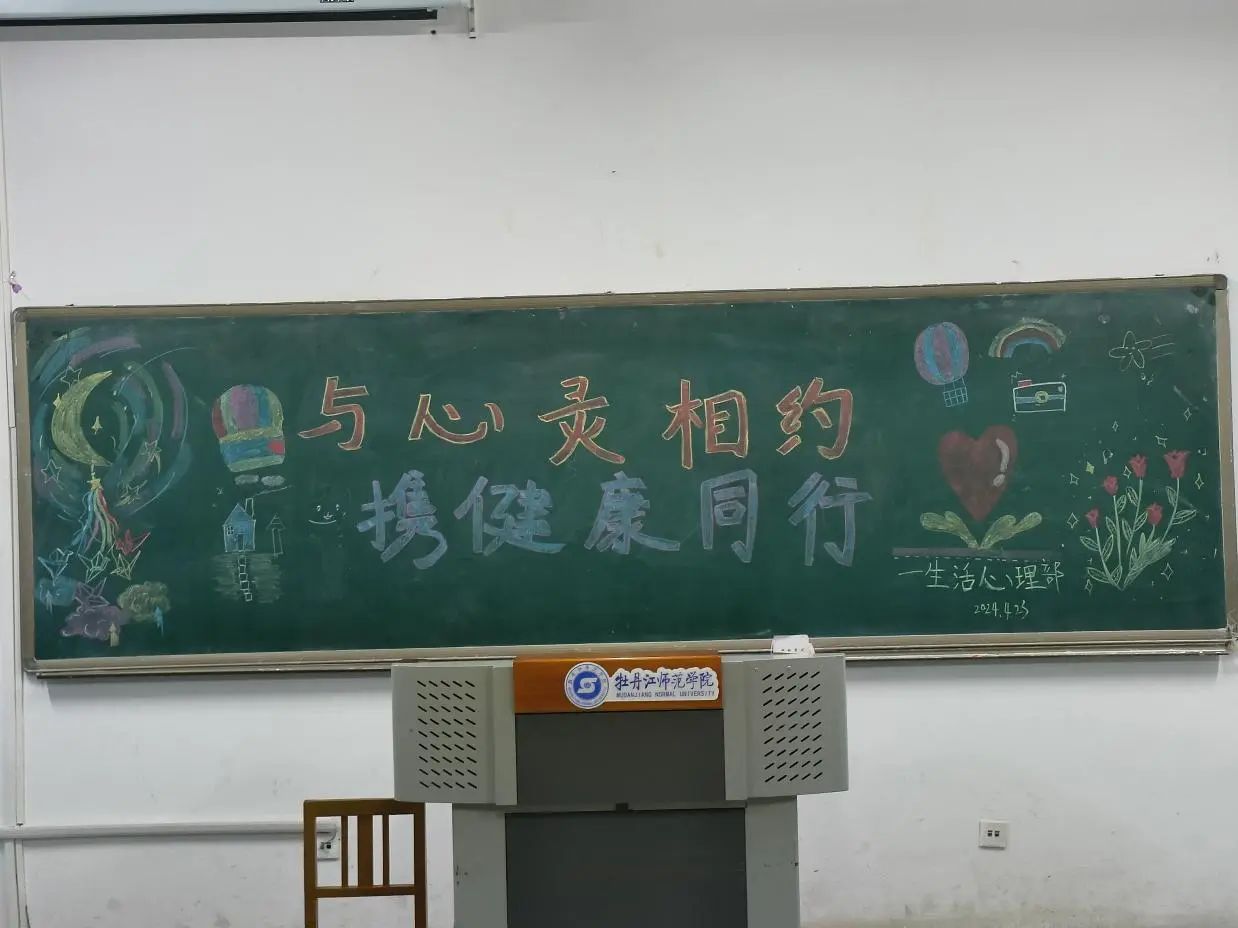 与心灵相约
携健康同行
一生活心理部
2024.4.23
牡丹江师范学院
MUDANJIANG NORMAL UNIVERSITY